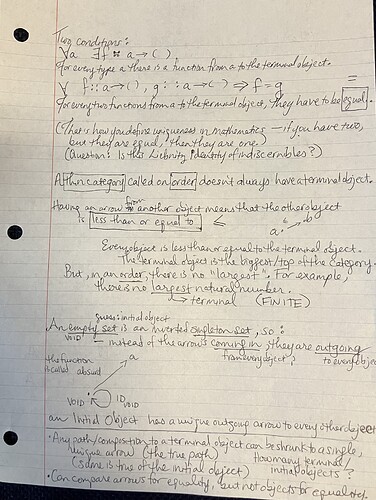 Two conditions:
∀a ∃f :: a → ( )
for every type a there is a function from a to the terminal object.
∀ f :: a → ( ), g :: a → ( ) ⇒ f = g
=
for every two functions from a to the terminal object, they have to be equal.
(That is how you define uniqueness in mathematics — if you have two,
but they are equal, then they are one.)
(Question: Is this Liebnitz identity of indiscernibles?)
A thin category called an order doesn't always have a terminal object.
Having an arrow from another object means that the other object
is less than or equal to ≤
a ≤ b
Every object is less than or equal to the terminal object.
The terminal object is the biggest/top of the category.
But, in an order, there is no "largest". For example,
there is no largest natural number.
↳ terminal (FINITE)
gives: initial object
An empty set is an inverted singleton set, so:
VOID instead of the arrows coming in, they are outgoing
from every object, to every object
the function a
is called absurd
VOID ID VOID
an Initial Object has a unique outgoing arrow to every other object
• Any path/composition to a terminal object can be shrunk to a single,
unique arrow (the true path) How many terminal/
(same is true of the initial object) initial objects?
• Can compare arrows for equality, but not objects for equality